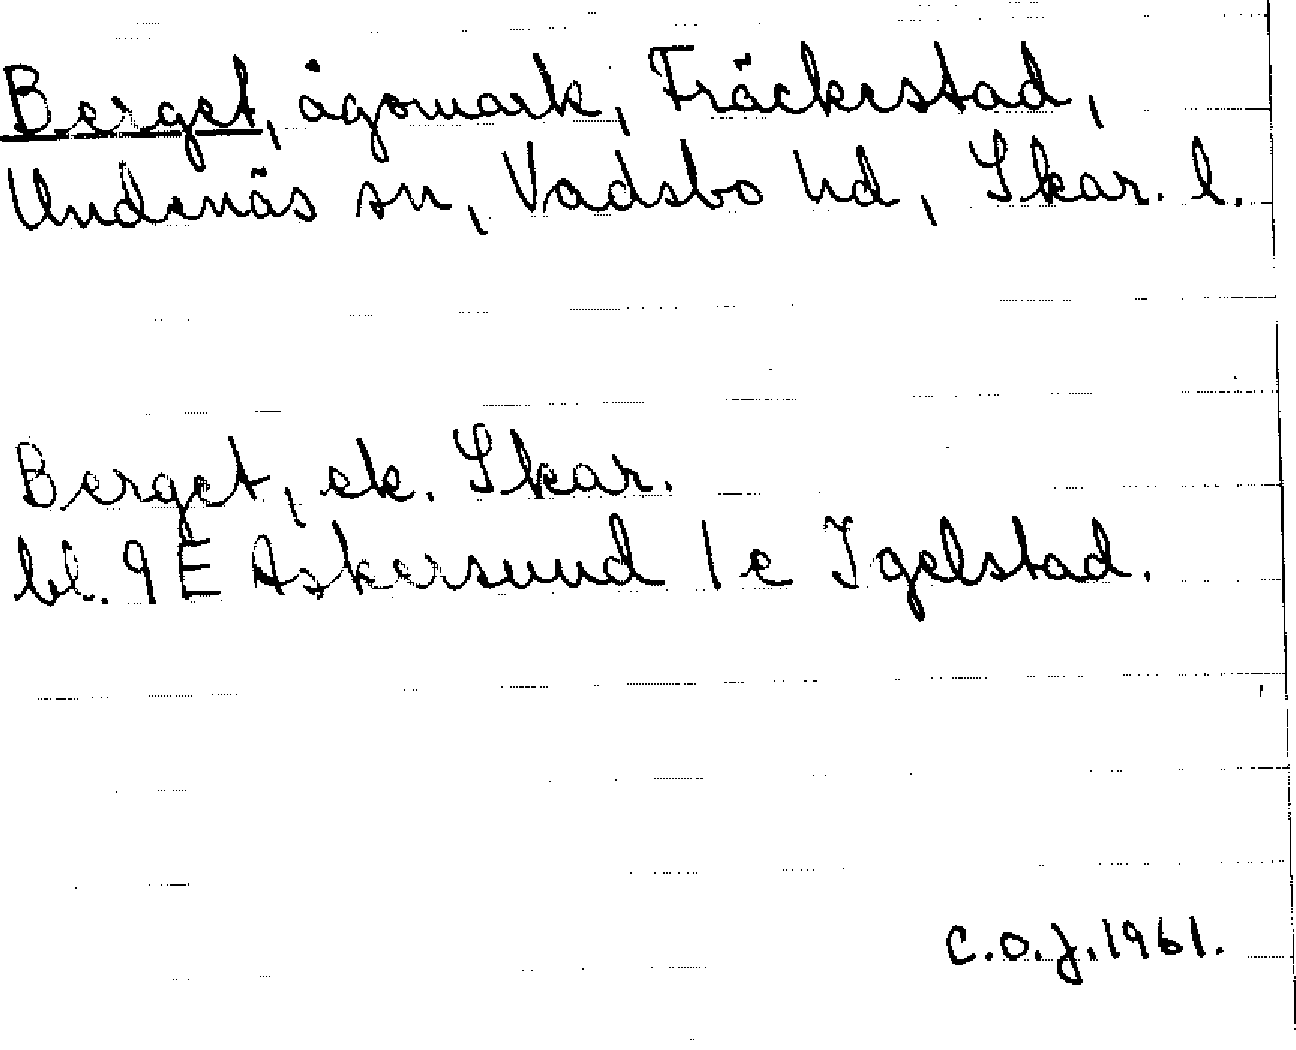 Berget, ägomark, Fräckestad,
Undenäs sn, Vadsbo hd, Skar. l.
Berget, ek. Skar.
bl. 9E Askersund 1 c Igelstad.
C.O.J. 1961.